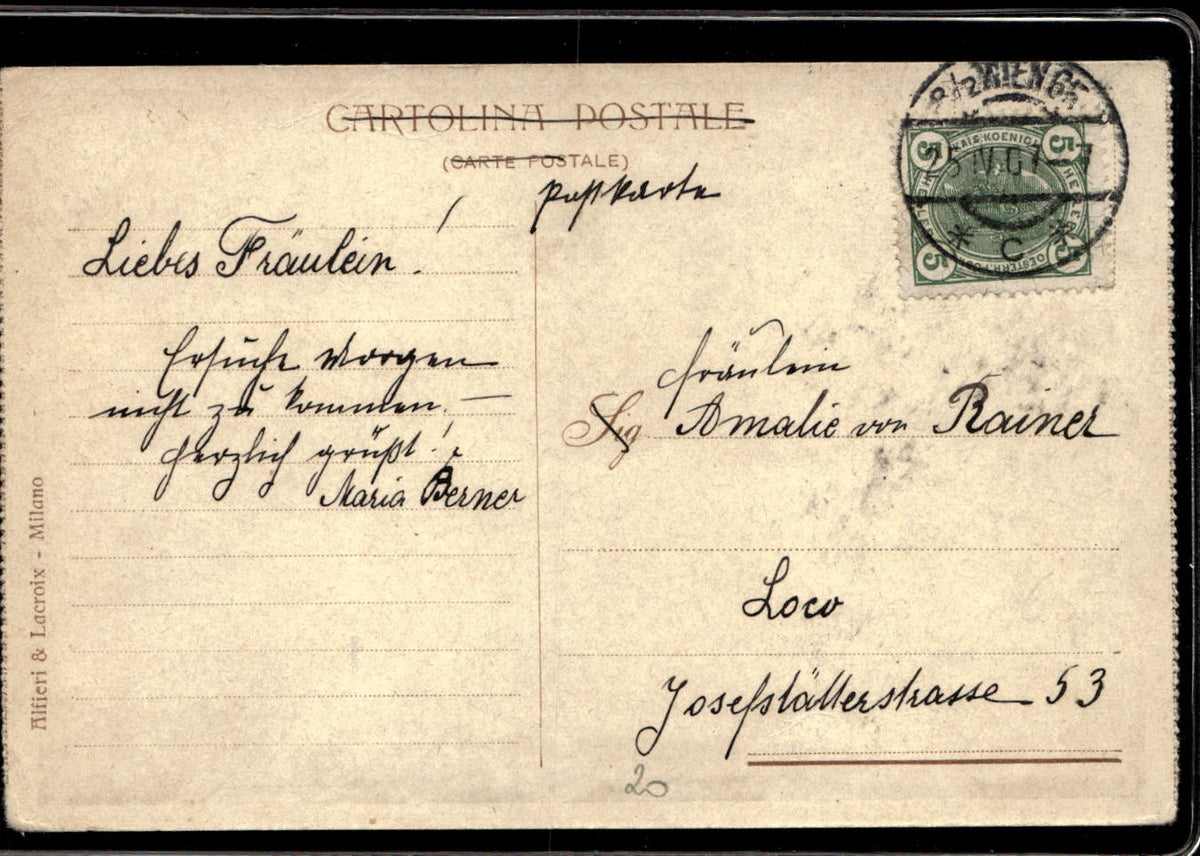 CARTOLINA POSTALE
(CARTE POSTALE)
Postkarte
Liebes Fräulein!
Ersuche Morgen
nicht zu kommen. —
Herzlich grüßt!
Maria Berner
Alfieri & Lacroix - Milano
8/2 WIEN 65
25 IV 07
* C *
5 5
5 5
KAIS. KOENIGL
Fräulein
Sig. Amalie von Rainer
Loco
Josefstätterstrasse 53
20